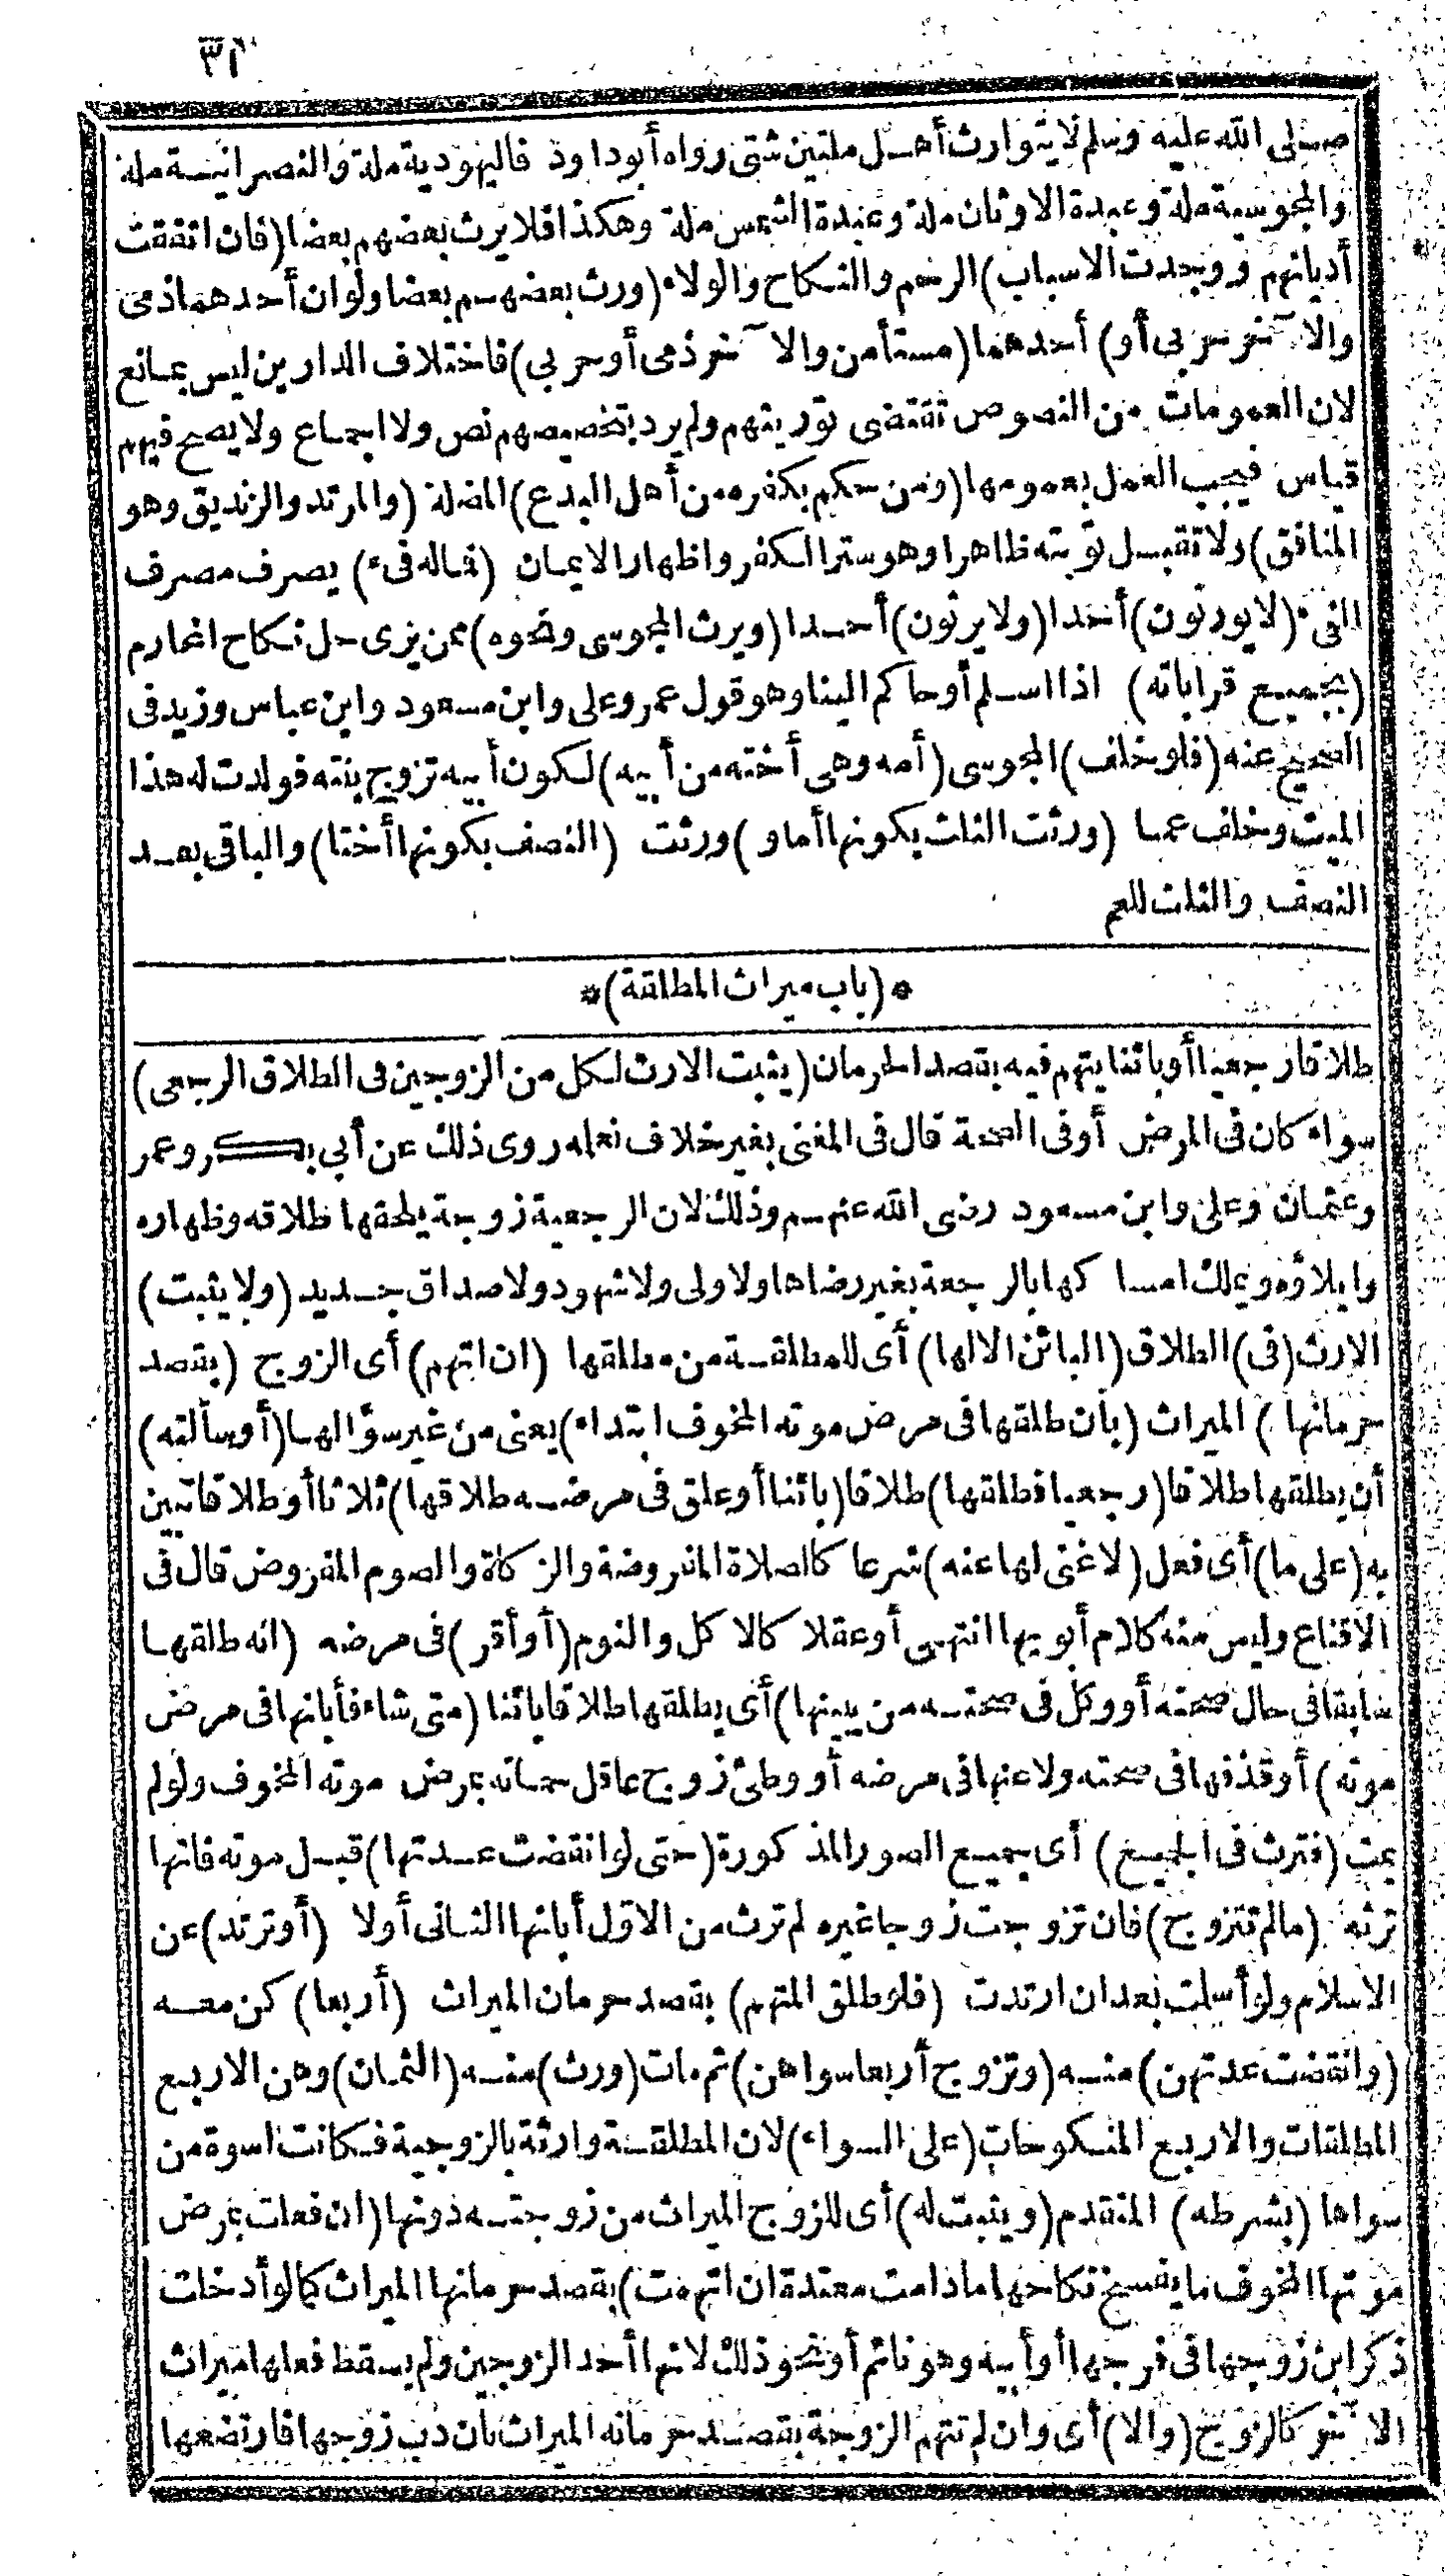 ٣١
صلى الله عليه وسلم لا يتوارث أهل ملتين شتى رواه أبو داود فاليهودية ملة والنصرانية ملة
والمجوسية ملة وعبدة الاوثان ملة وعبدة الشمس ملة وهكذا فلا يرث بعضهم بعضا (فان اتفقت
أديانهم ووجدت الاسباب) الرحم والنكاح والولاء (ورث بعضهم بعضا ولو ان أحدهما ذمى
والا آخر حربى أو) أحدهما (مستأمن والا آخر ذمى أو حربي) فاختلاف الدارين ليس بمانع
لان العمومات من النصوص تقتضى توريثهم ولم يرد بتخصيصهم نص ولا اجماع ولا يصح فيهم
قياس فيجب العمل بعمومها (ومن حكم بكفره من أهل البدع) المضلة (والمرتد والزنديق وهو
المنافق) ولا تقبل توبته ظاهرا وهو ستر الكفر واظهار الايمان (فماله فىء) يصرف مصرف
الفىء (لا يورثون) أحدا (ولا يرثون) أحدا (ويرث المجوسى ونحوه) ممن يرى حل نكاح المحارم
(بجميع قراباته) اذا اسلم أو حاكم الينا وهو قول عمر وعلى وابن مسعود وابن عباس وزيد فى
الصحيح عنه (فلو خلف) المجوسى (أمه وهى أخته من أبيه) لكون أبيه تزوج بنته فولدت له هذا
الميت وخلف عما (ورثت الثلث بكونها أما و) ورثت (النصف بكونها أختا) والباقى بعد
النصف والثلث للعم
* (باب ميراث المطلقة) *
طلاقا رجعيا أو بائنا يتهم فيه بقصد الحرمان (يثبت الارث لكل من الزوجين فى الطلاق الرجعى)
سواء كان فى المرض أو فى الصحة قال فى المغنى بغير خلاف نعلمه روى ذلك عن أبي بكر وعمر
وعثمان وعلى وابن مسعود رضى الله عنهم وذلك لان الرجعية زوجة يلحقها طلاقه وظهاره
وايلاؤه ويملك امساكها بالرجعة بغير رضاها ولا ولى ولا شهود ولا صداق جديد (ولا يثبت)
الارث (فى) الطلاق (البائن الا لها) أى للمطلقة من مطلقها (ان اتهم) أى الزوج (بقصد
حرمانها) الميراث (بأن طلقها فى مرض موته المخوف ابتداء) يعنى من غير سؤالها (أو سألته)
أن يطلقها طلاقا (رجعيا فطلقها) طلاقا (بائنا أو علق فى مرضه طلاقها) ثلاثا أو طلاقا تبين
به (على ما) أى فعل (لا غنى لها عنه) شرعا كالصلاة المفروضة والزكاة والصوم المفروض قال فى
الاقناع وليس منه كلام أبويها انتهى أو عقلا كالاكل والنوم (أو أقر) فى مرضه (انه طلقها
سابقا فى حال صحته أو وكل فى صحته من يبينها) أى يطلقها طلاقا بائنا (متى شاء فأبانها فى مرض
موته) أو قذفها فى صحته ولاعنها فى مرضه أو وطئ زوج عاقل حماته بمرض موته المخوف ولو لم
يمت (فترث فى الجميع) أى جميع الصور المذكورة (حتى لو انقضت عدتها) قبل موته فانها
ترثه (ما لم تتزوج) فان تزوجت زوجا غيره لم ترث من الاوّل أبانها الثانى أولا (أو ترتد) عن
الاسلام ولو أسلمت بعد ان ارتدت (فلو طلق المتهم) بقصد حرمان الميراث (أربعا) كن معه
(وانقضت عدتهن) منه (وتزوج أربعا سواهن) ثم مات (ورث) منه (الثمان) وهن الاربع
المطلقات والاربع المنكوحات (على السواء) لان المطلقة وارثة بالزوجية فكانت اسوة من
سواها (بشرطه) المتقدم (ويثبت له) أى للزوج الميراث من زوجته دونها (ان فعلت بمرض
موتها المخوف ما يفسخ نكاحها ما دامت معتدة ان اتهمت) بقصد حرمانها الميراث كما لو أدخلت
ذكر ابن زوجها فى فرجها أو أبيه وهو نائم أو نحو ذلك لانها أحد الزوجين ولم يسقط فعلها ميراث
الا آخر كالزوج (والا) أى وان لم تتهم الزوجة بقصد حرمانه الميراث بأن دب زوجها فارتضعها